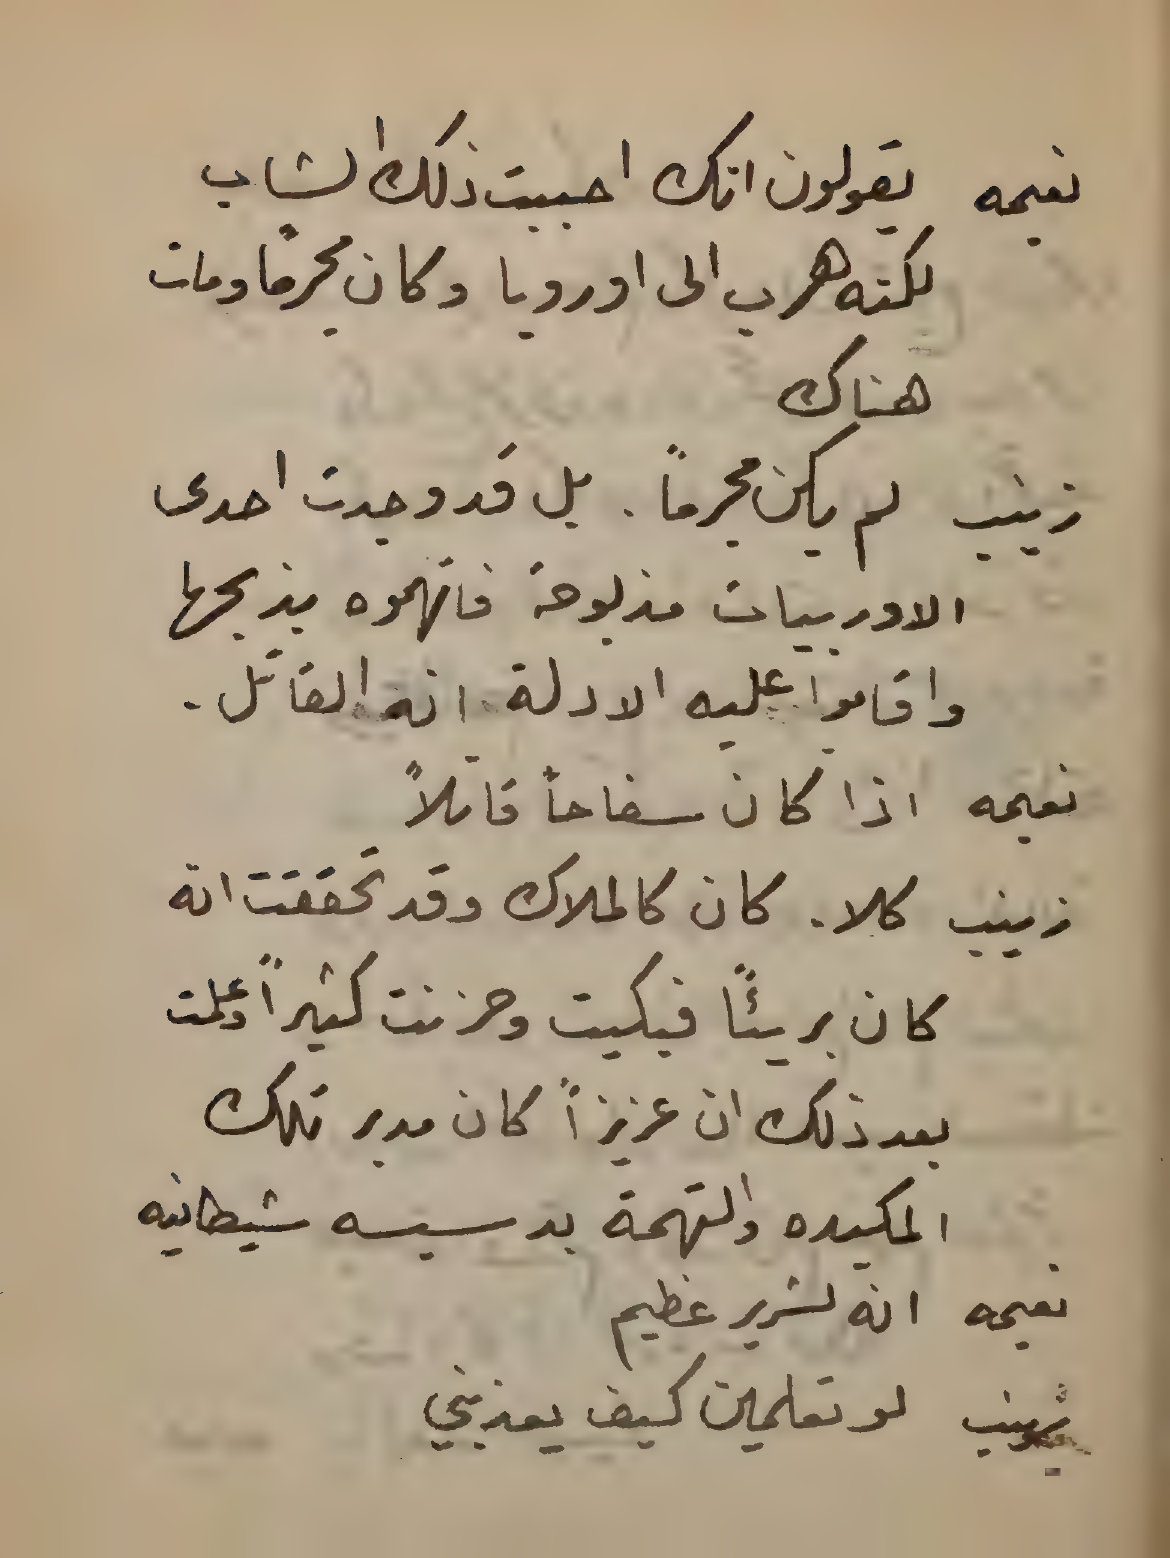 نعيمه يقولون انك احببت ذلك الشاب
لكنه هرب الى اوروبا وكان مجرمًا ومات
هناك
زينب لم يكن مجرماً . بل قد وجدت احدى
الاوربيات مذبوحة فاتهموه بذبحها
واقاموا عليه الادلة انه القاتل .
نعيمه اذا كان سفاحاً قاتلاً
زينب كلا . كان كالملاك وقد تحققت انه
كان بريئًا فبكيت وحزنت كثيراً وعلمت
بعد ذلك ان عزيزاً كان مدبر تلك
المكيده والتهمة بدسيسه شيطانيه
نعيمه انه لشرير عظيم
زينب لو تعلمين كيف يعذبني